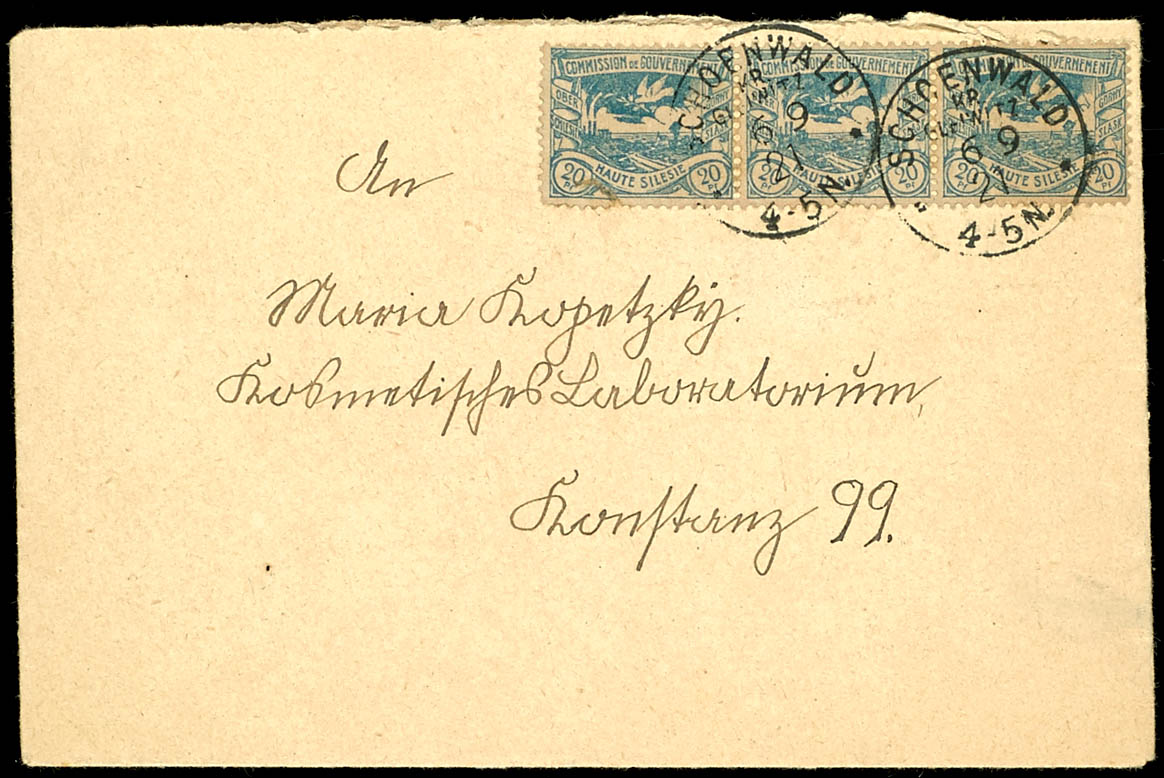 COMMISSION DE GOUVERNE
COMMISSION DE GOUVERNEMENT
GOUVERNEMENT
OBER
SLĄSK
HAUTE SILESIE
20 Pf 20 Pf
HAUTE SILESIE
20 Pf
HAUTE SILESIE
20 20 Pf
SCHOENWALD
KR. GLEIWITZ
6 9
21
4-5N.
SCHOENWALD
KR. GLEIWITZ
6 9
21
4-5N.
An
Maria Kopetzky.
Kosmetisches Laboratorium,
Konstanz 99.